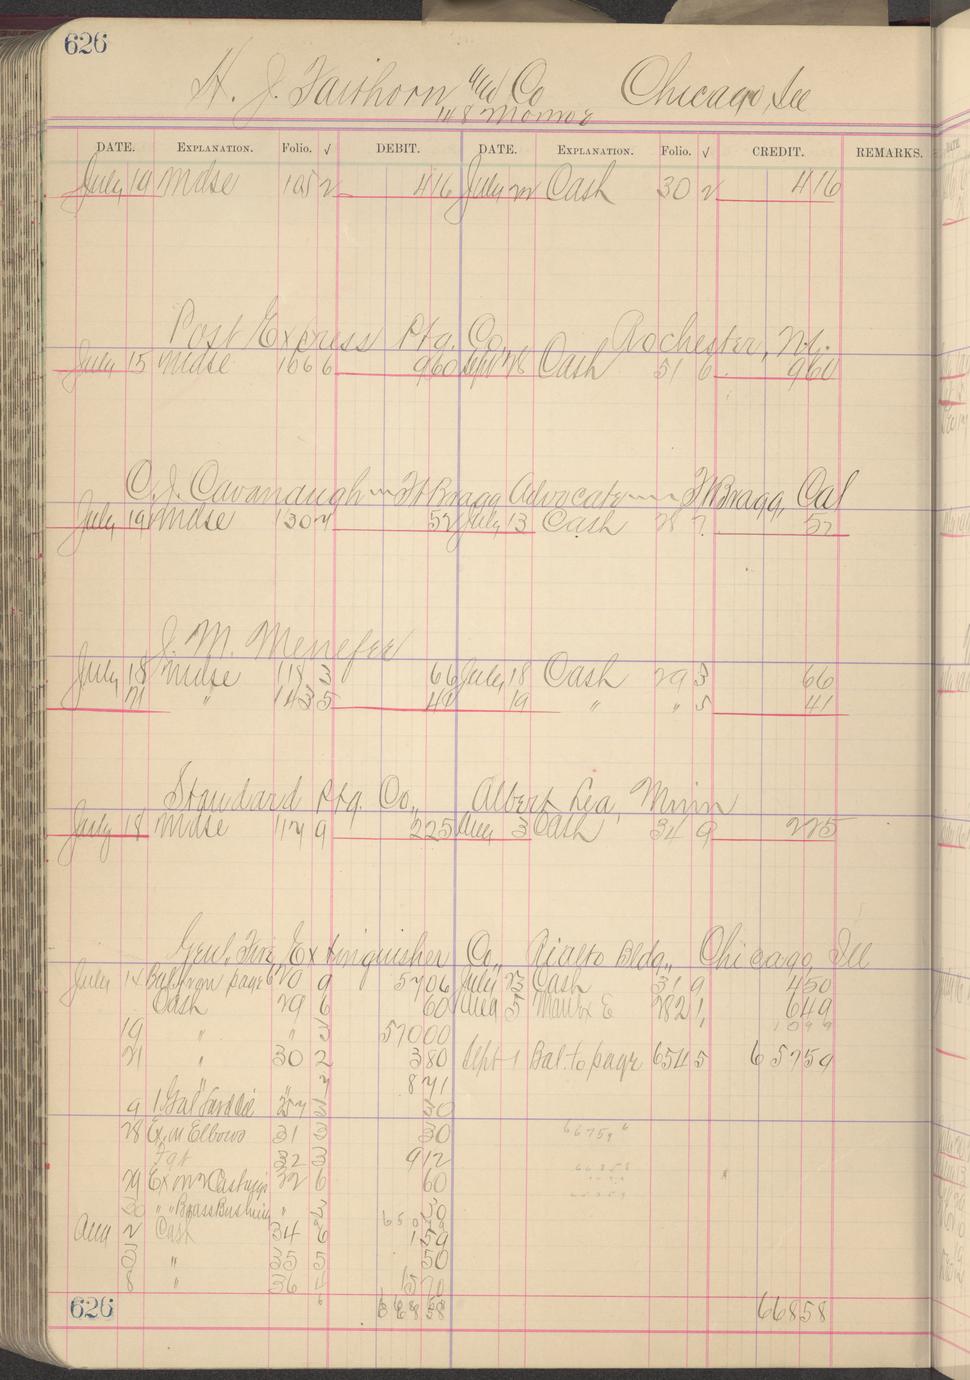 626
H. J. Fairhorn Co Chicago, Ill
DATE. EXPLANATION. Folio. √ DEBIT. DATE. EXPLANATION. Folio. √ CREDIT. REMARKS.
July 19 Mdse 105 2 416 July Cash 30 2 416
Post Express Ptg. Co. Rochester, N.Y.
July 15 Mdse 106 6 960 Sept Cash 51 6 960
C. J. Cavanaugh Ft Bragg Advocate Ft Bragg, Cal
July 19 Mdse 130 52 July 13 Cash 28 7 52
J. M. Menefee
July 18 Mdse 118 3 66 July 18 Cash 29 3 66
21 " 143 5 41 19 " " 5 41
Standard Ptg. Co., Albert Lea, Minn
July 18 Mdse 9 225 Aug 3 Cash 34 9 225
Genl. Fire Extinguisher Co., Rialto Bldg., Chicago Ill
July 1 Bal from page 9 5706 July 23 Cash 31 9 450
Cash 29 6 60 Aug 5 282 1 649
19 " " 3 57000 1099
21 " 30 2 380 Sept 1 Bal. to page 654 5 65759
871
9 1 Gal Lard Oil 257 30
28 Ex. Elbows 31 3 30
32 3 912
29 Ex Castings 22 6 60
30 " " Brass Bushing " 3 30
Aug 2 Cash 34 6 159
3 " 35 5 50
8 " 36 4 1520
626 66858 66858